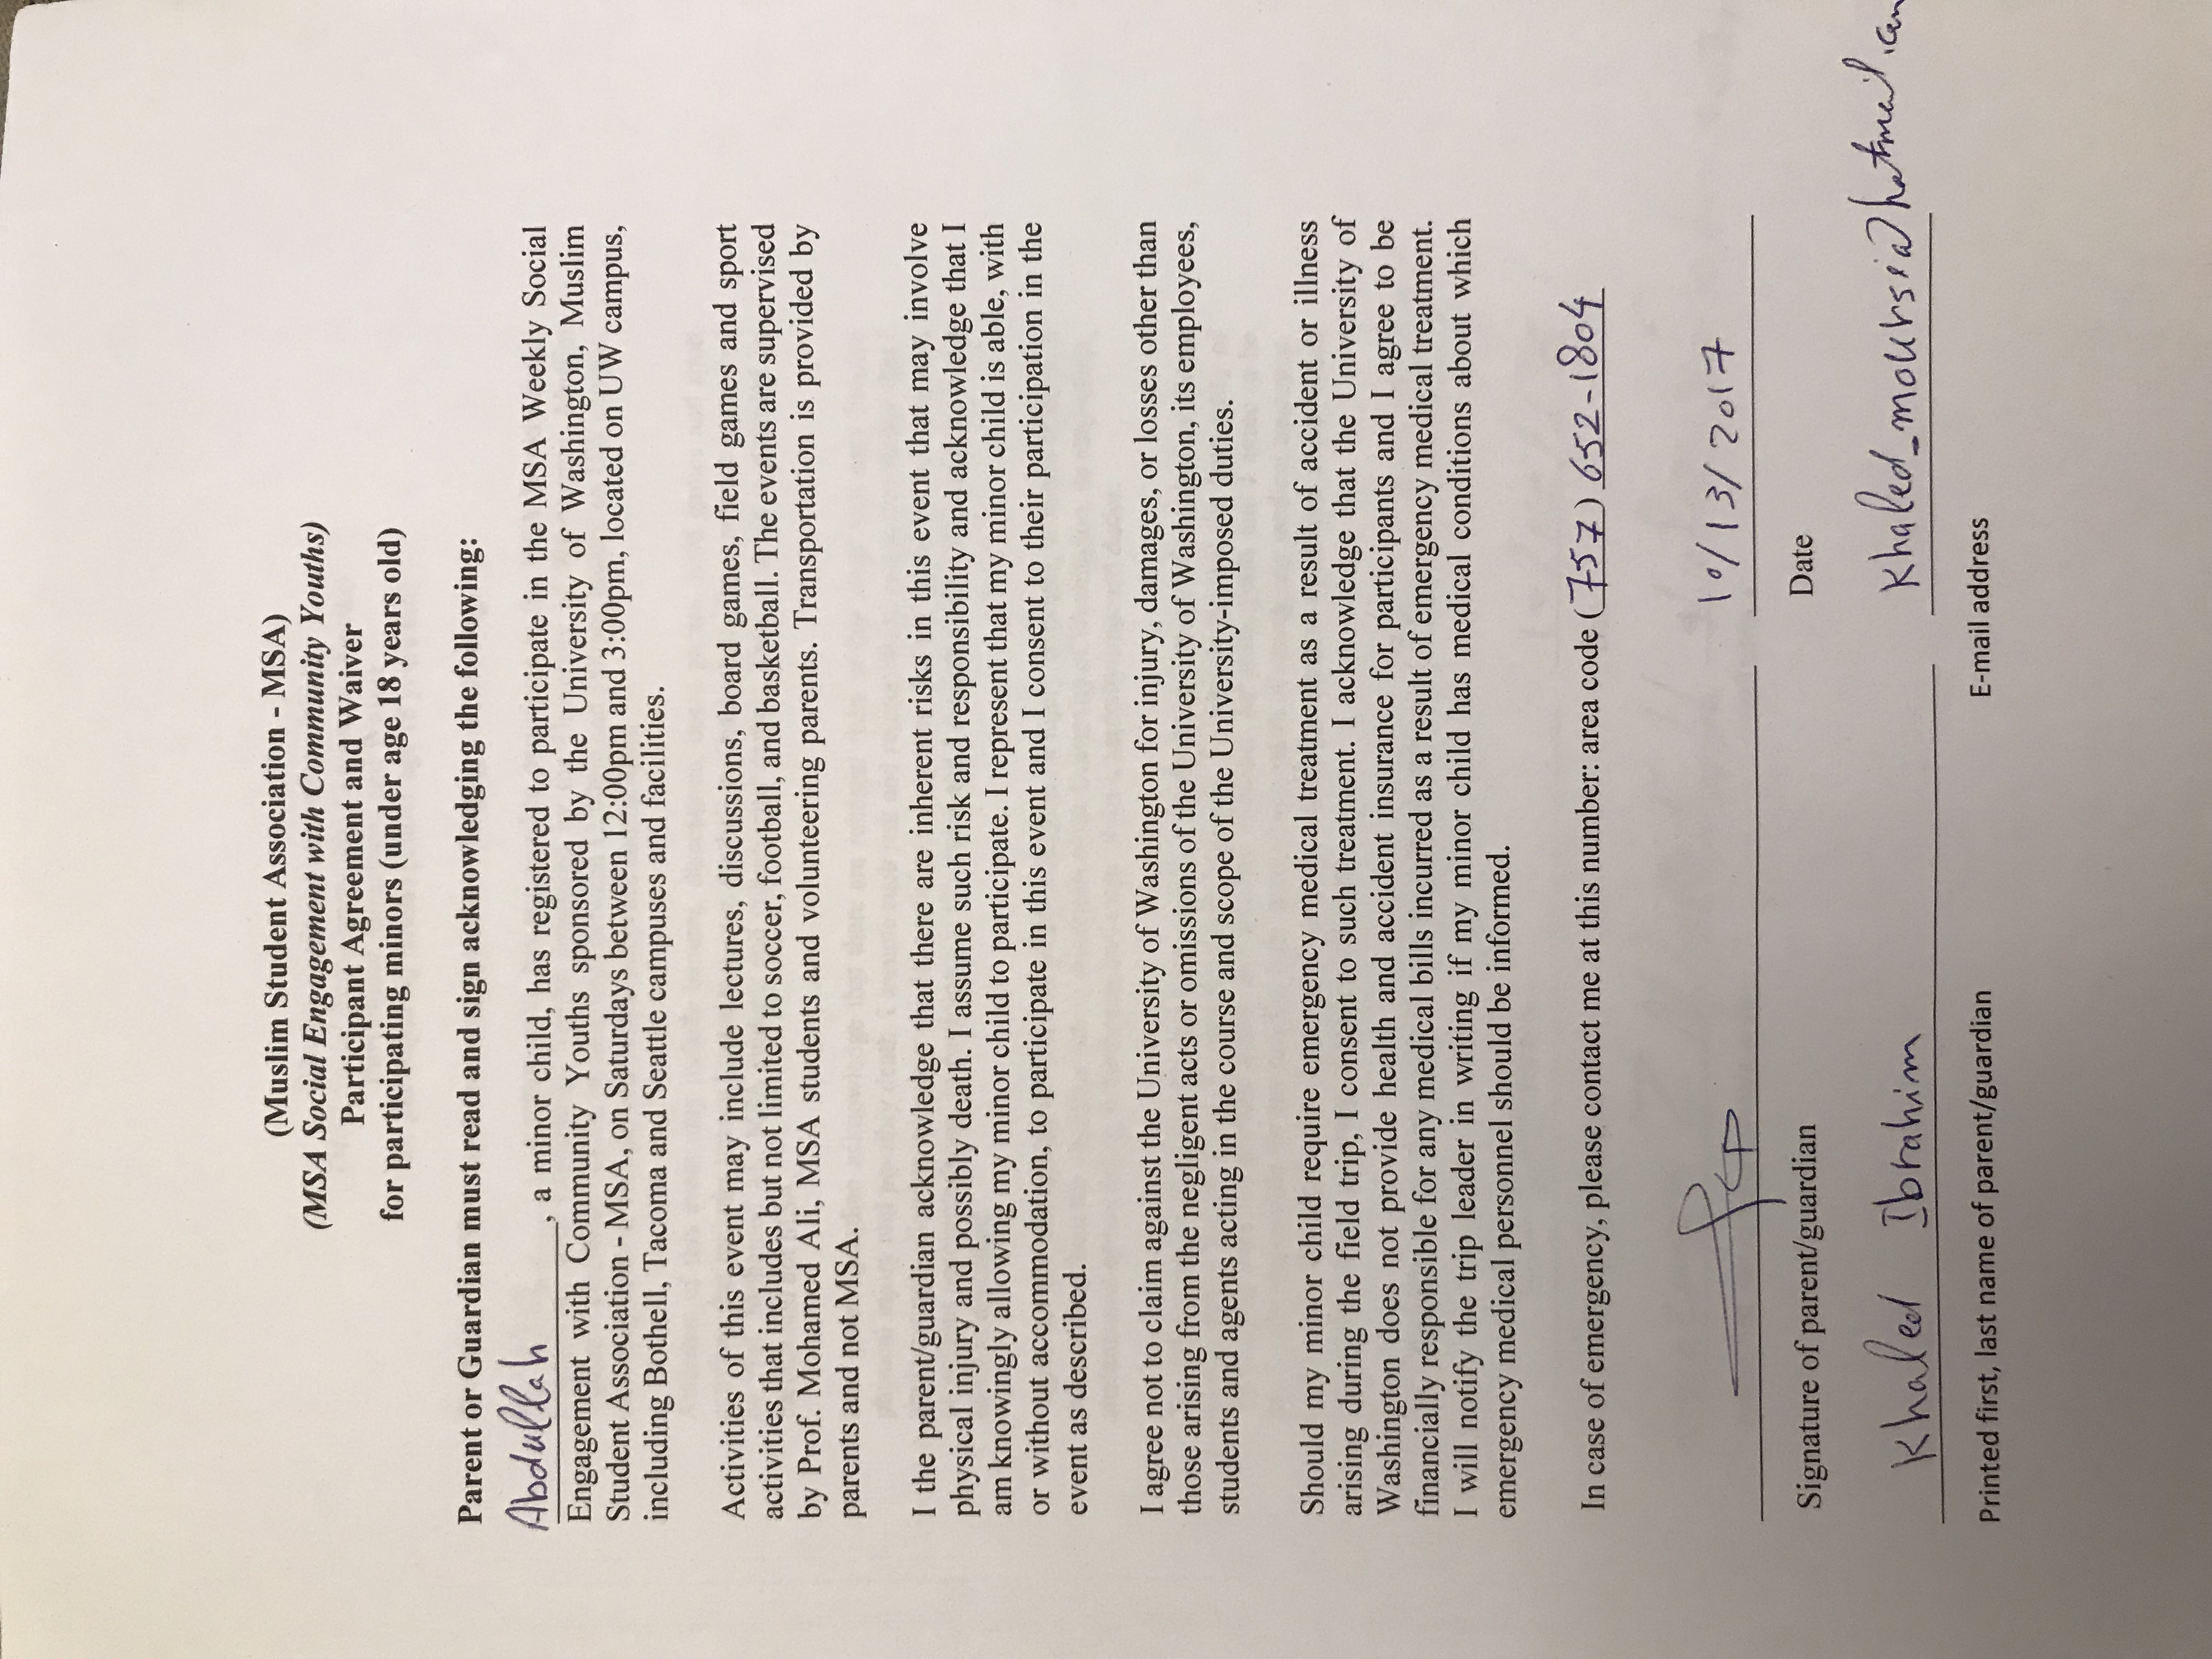 (Muslim Student Association - MSA)
(MSA Social Engagement with Community Youths)
Participant Agreement and Waiver
for participating minors (under age 18 years old)
Parent or Guardian must read and sign acknowledging the following:
Abdullah, a minor child, has registered to participate in the MSA Weekly Social
Engagement with Community Youths sponsored by the University of Washington, Muslim
Student Association - MSA, on Saturdays between 12:00pm and 3:00pm, located on UW campus,
including Bothell, Tacoma and Seattle campuses and facilities.
Activities of this event may include lectures, discussions, board games, field games and sport
activities that includes but not limited to soccer, football, and basketball. The events are supervised
by Prof. Mohamed Ali, MSA students and volunteering parents. Transportation is provided by
parents and not MSA.
I the parent/guardian acknowledge that there are inherent risks in this event that may involve
physical injury and possibly death. I assume such risk and responsibility and acknowledge that I
am knowingly allowing my minor child to participate. I represent that my minor child is able, with
or without accommodation, to participate in this event and I consent to their participation in the
event as described.
I agree not to claim against the University of Washington for injury, damages, or losses other than
those arising from the negligent acts or omissions of the University of Washington, its employees,
students and agents acting in the course and scope of the University-imposed duties.
Should my minor child require emergency medical treatment as a result of accident or illness
arising during the field trip, I consent to such treatment. I acknowledge that the University of
Washington does not provide health and accident insurance for participants and I agree to be
financially responsible for any medical bills incurred as a result of emergency medical treatment.
I will notify the trip leader in writing if my minor child has medical conditions about which
emergency medical personnel should be informed.
In case of emergency, please contact me at this number: area code (757) 652-1804
10/13/2017
Signature of parent/guardian Date
Khaled Ibrahim Khaled_moursi@hotmail.com
Printed first, last name of parent/guardian E-mail address